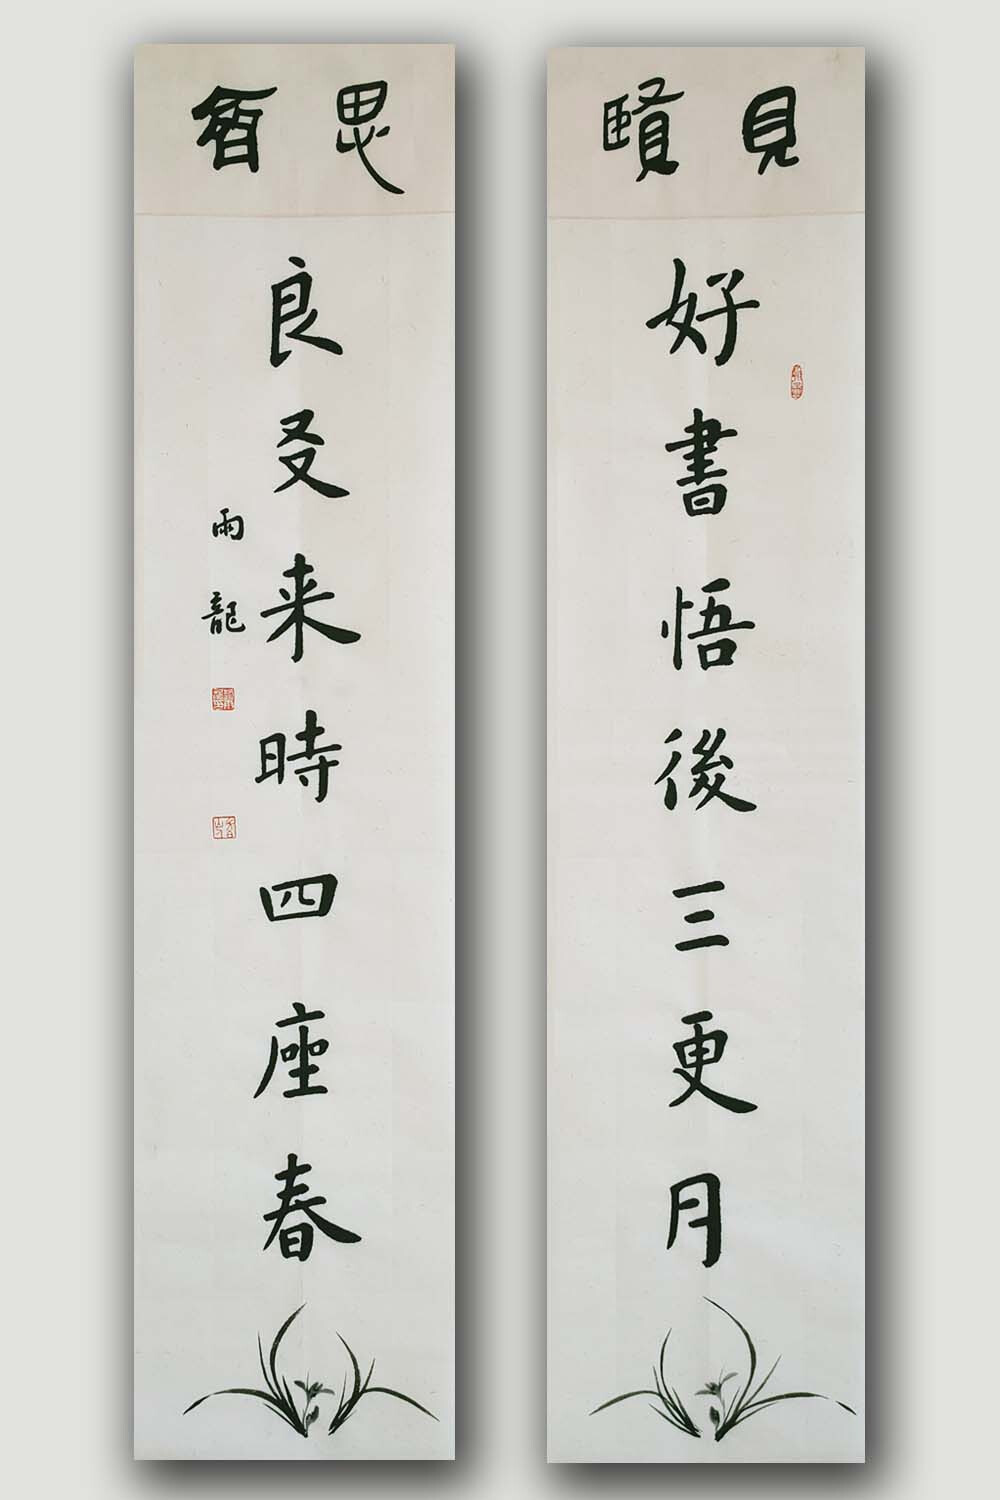 見賢
好書悟後三更月
思齊
良㕛来時四座春
雨龍